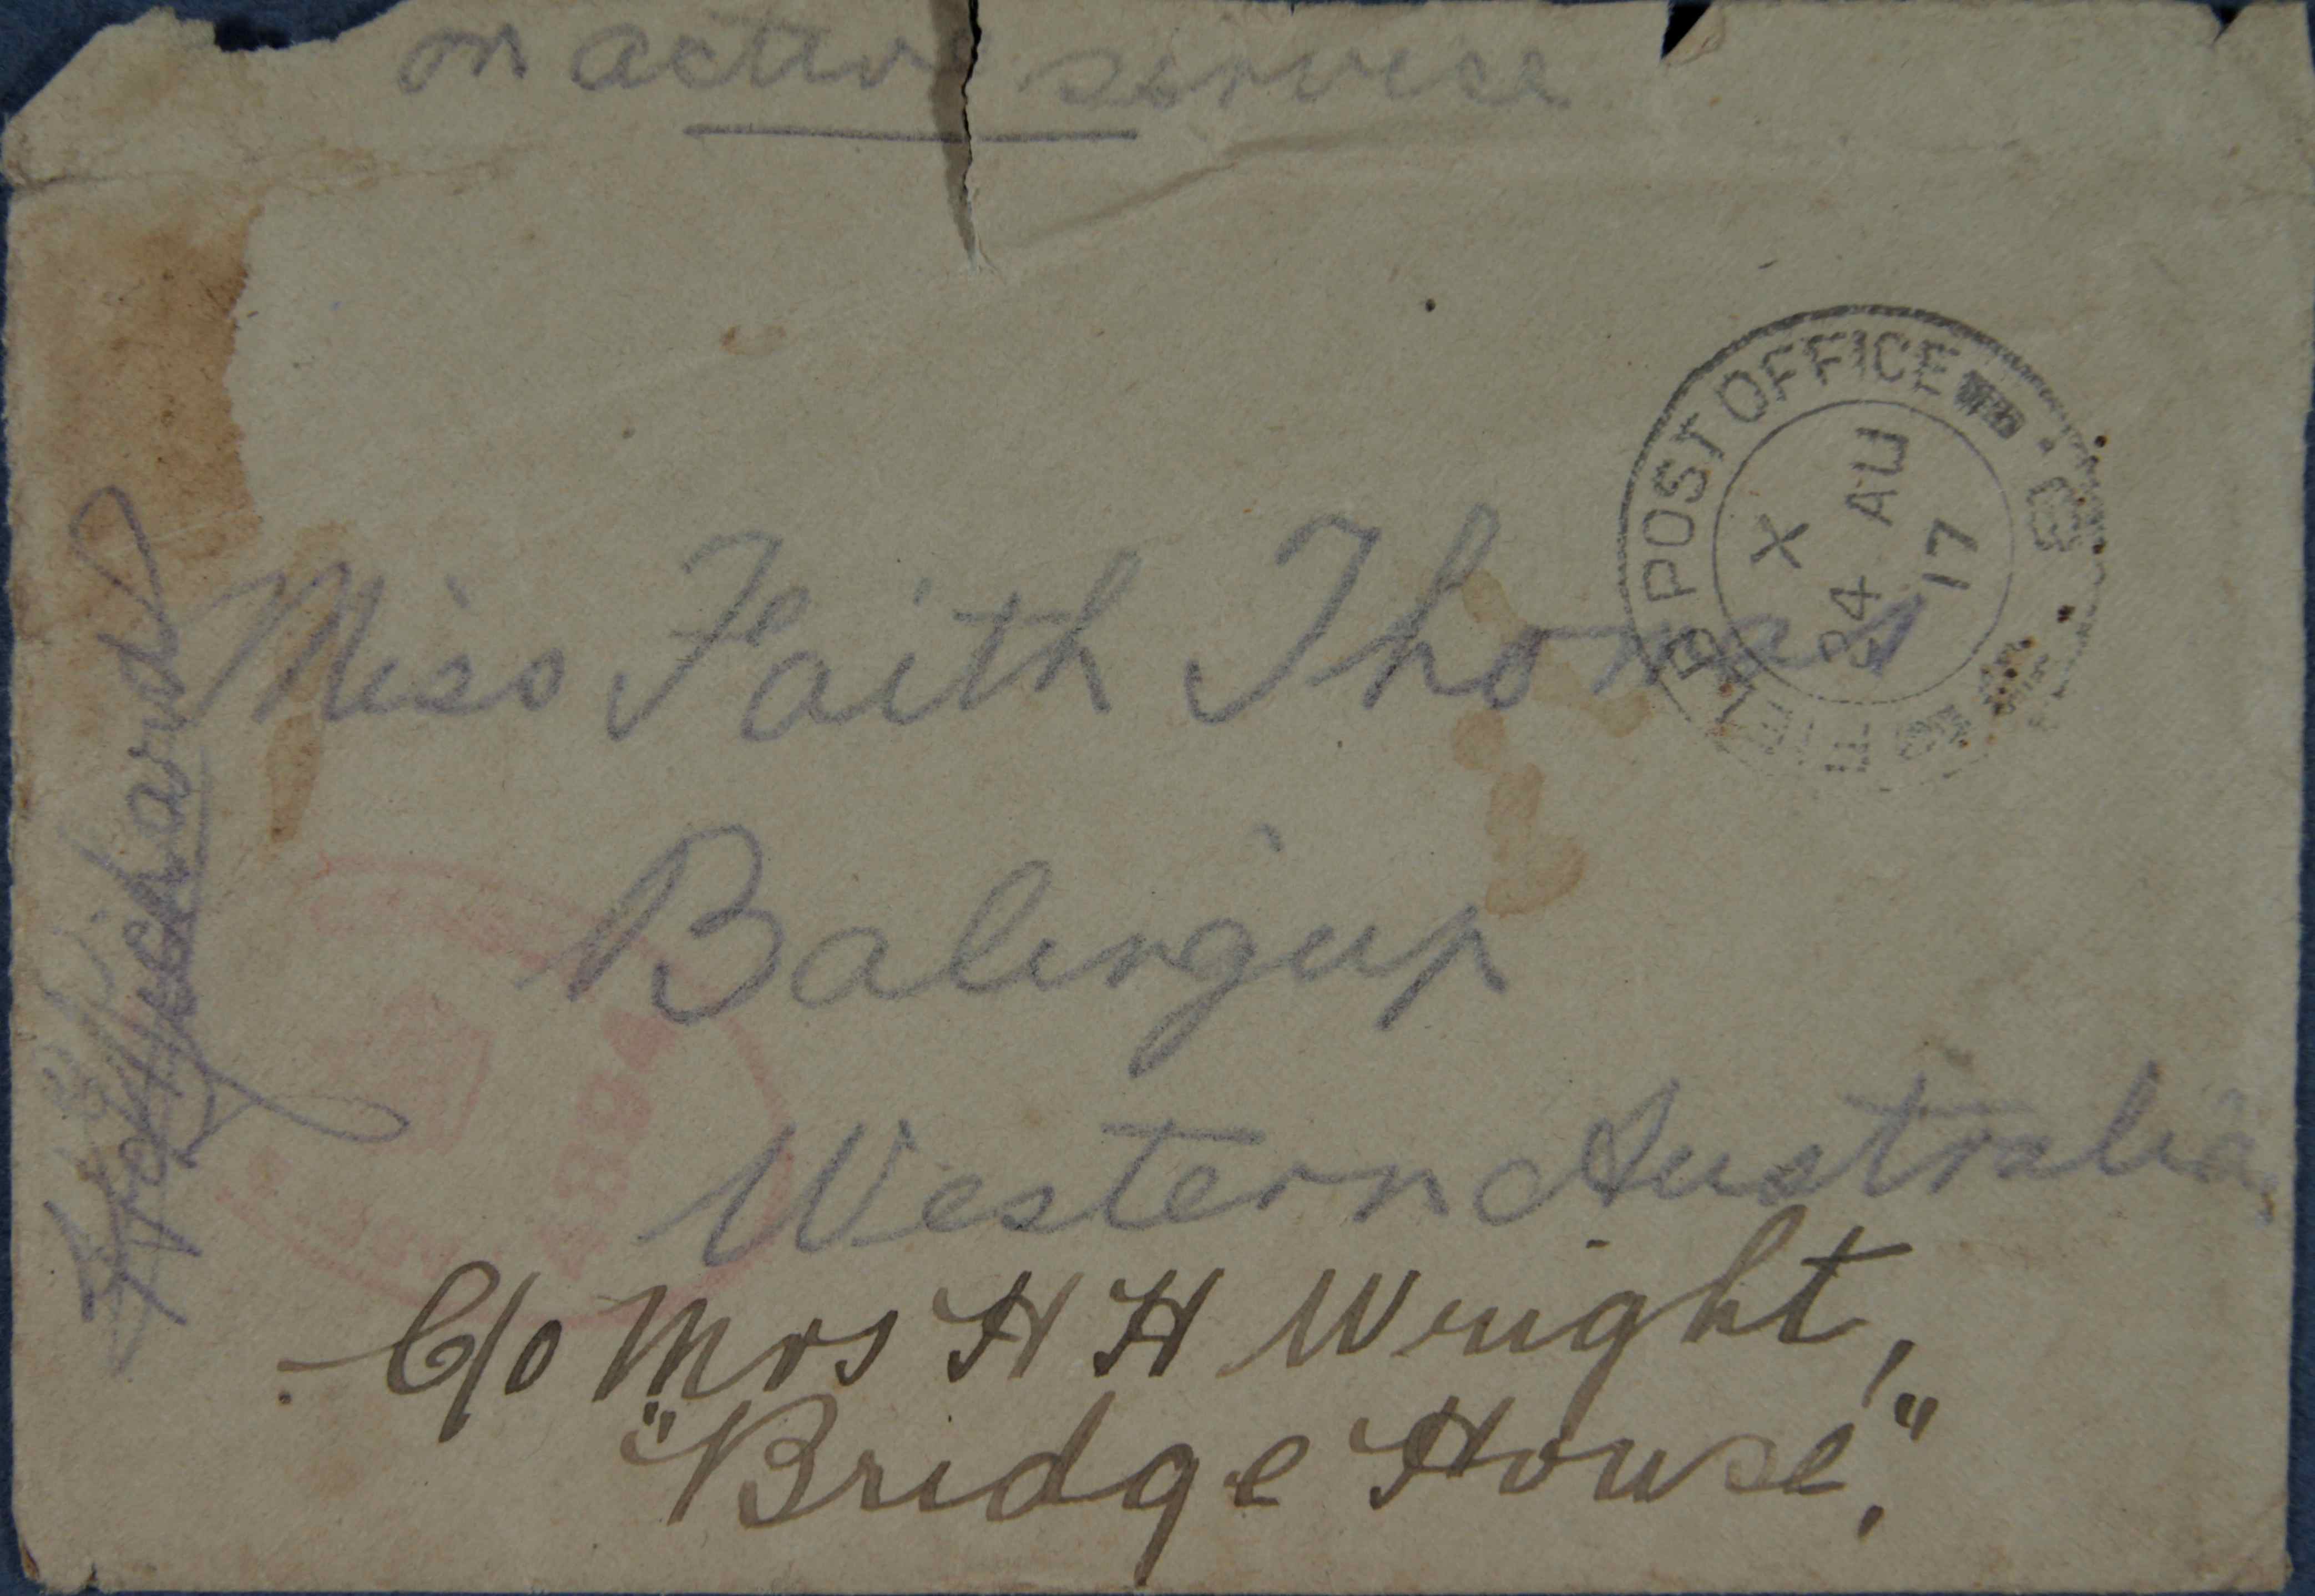 on active service
Miss Faith Thomas
Balingup
Western Australia,
C/o Mrs H H Wright,
"Bridge House,"
FIELD POST OFFICE
X
24 AU
17